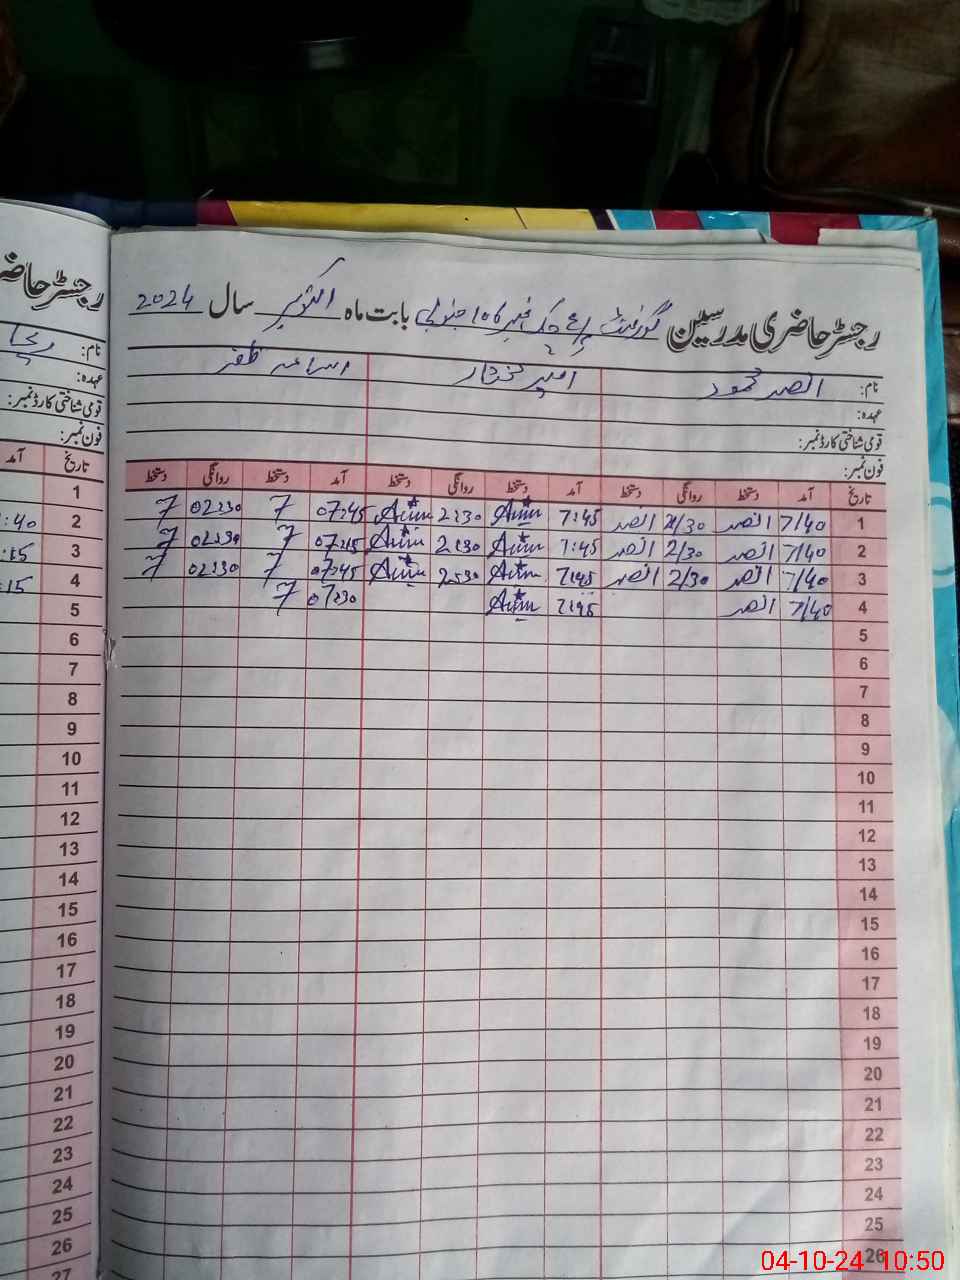 رجسٹر حاضری مدرسین گورنمنٹ چک نمبر 106 جنوبی بابت ماہ اکتوبر سال 2024
نام: انصر محمود امیر مختار اسامہ ظفر
عہدہ:
قومی شناختی کارڈ نمبر:
فون نمبر:
تاریخ آمد دستخط روانگی دستخط آمد دستخط روانگی دستخط آمد دستخط روانگی دستخط
1 7/40 انصر 2/30 انصر 7:45 2:30 07:45 7 02:30 7
2 7/40 انصر 2/30 انصر 7:45 2:30 07:45 7 02:30 7
3 7/40 انصر 2/30 انصر 7:45 2:30 07:45 7 02:30 7
4 7/40 انصر 7:45 07:30 7
5
6
7
8
9
10
11
12
13
14
15
16
17
18
19
20
21
22
23
24
25
26
رجسٹر حاضر
نام:
عہدہ:
قومی شناختی کارڈ نمبر:
فون نمبر:
تاریخ آمد
1
2 :40
3 :15
4 :15
5
6
7
8
9
10
11
12
13
14
15
16
17
18
19
20
21
22
23
24
25
26
27
04-10-24 10:50